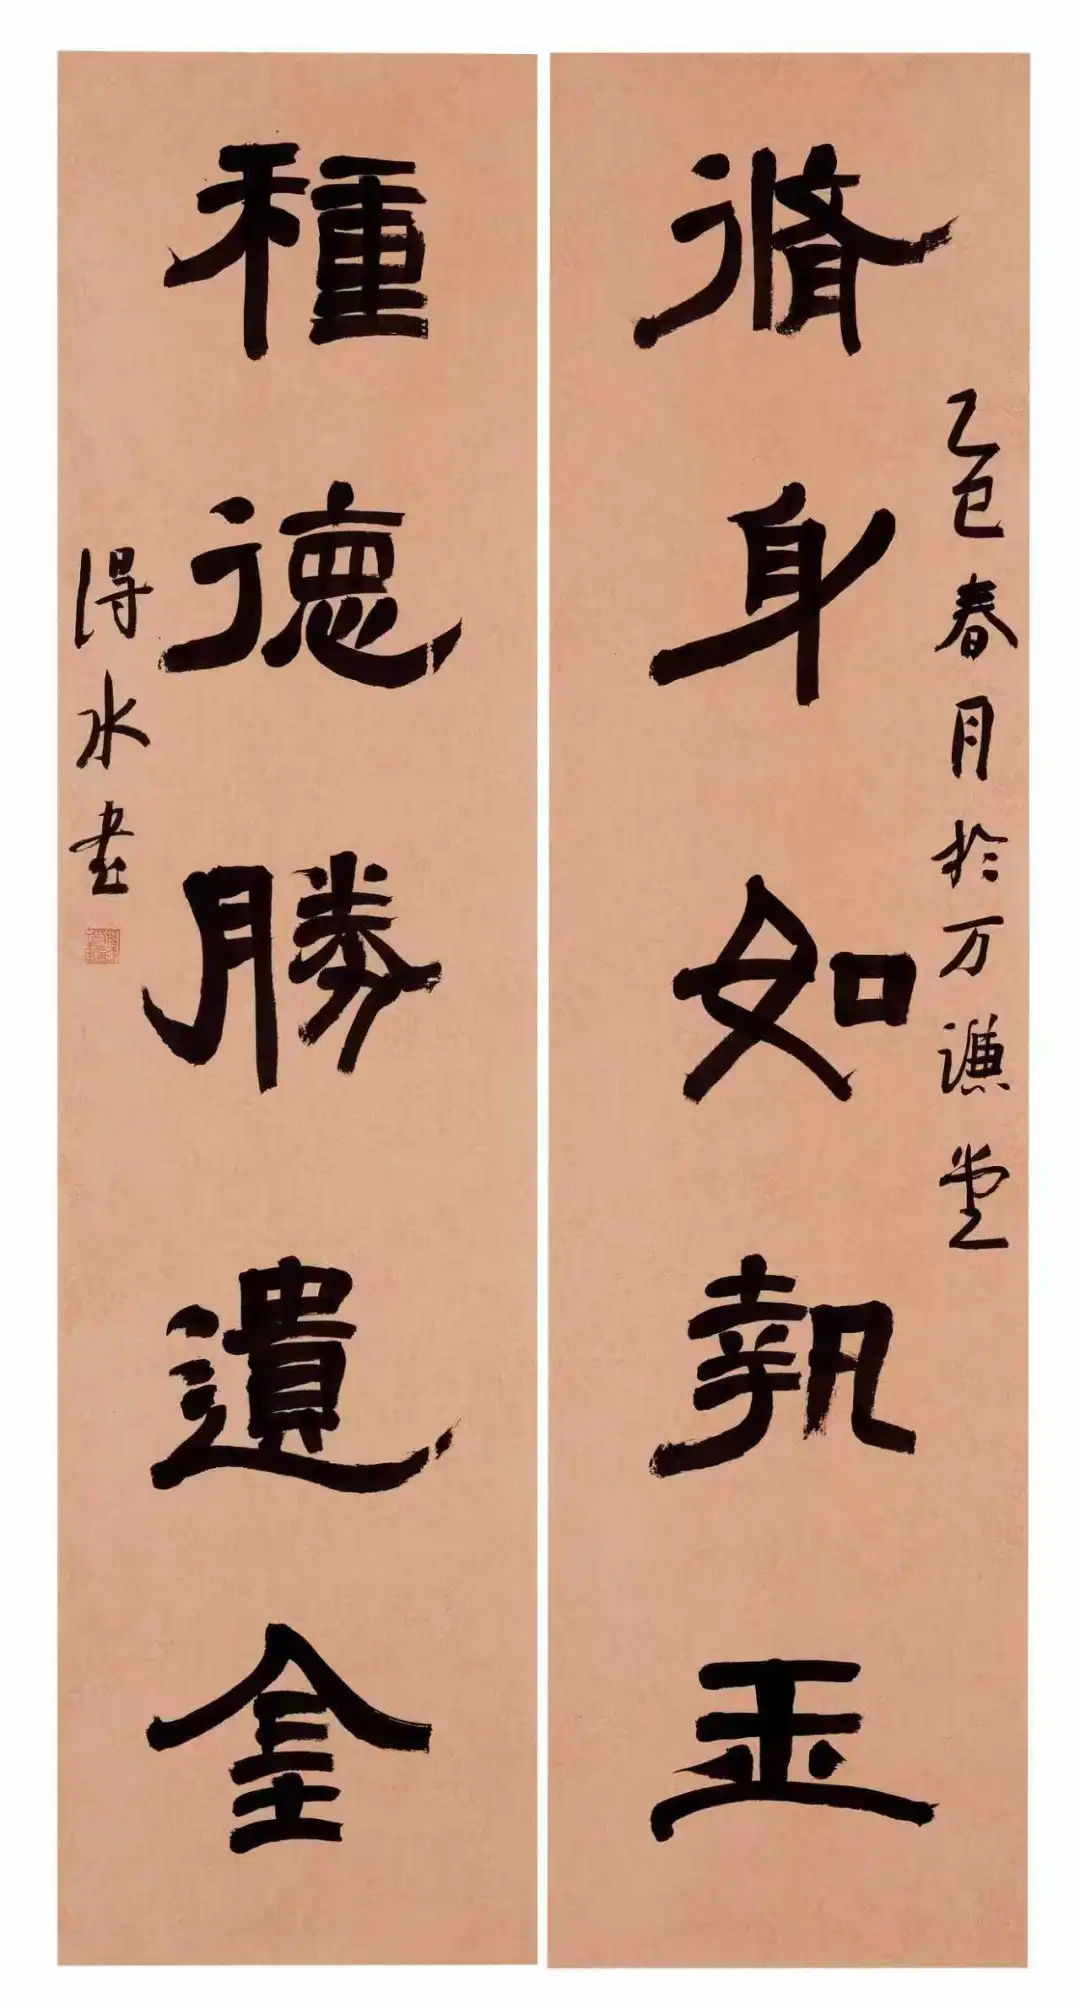 脩身如執玉
乙巳春月於万謙堂
種德勝遺金
得水書